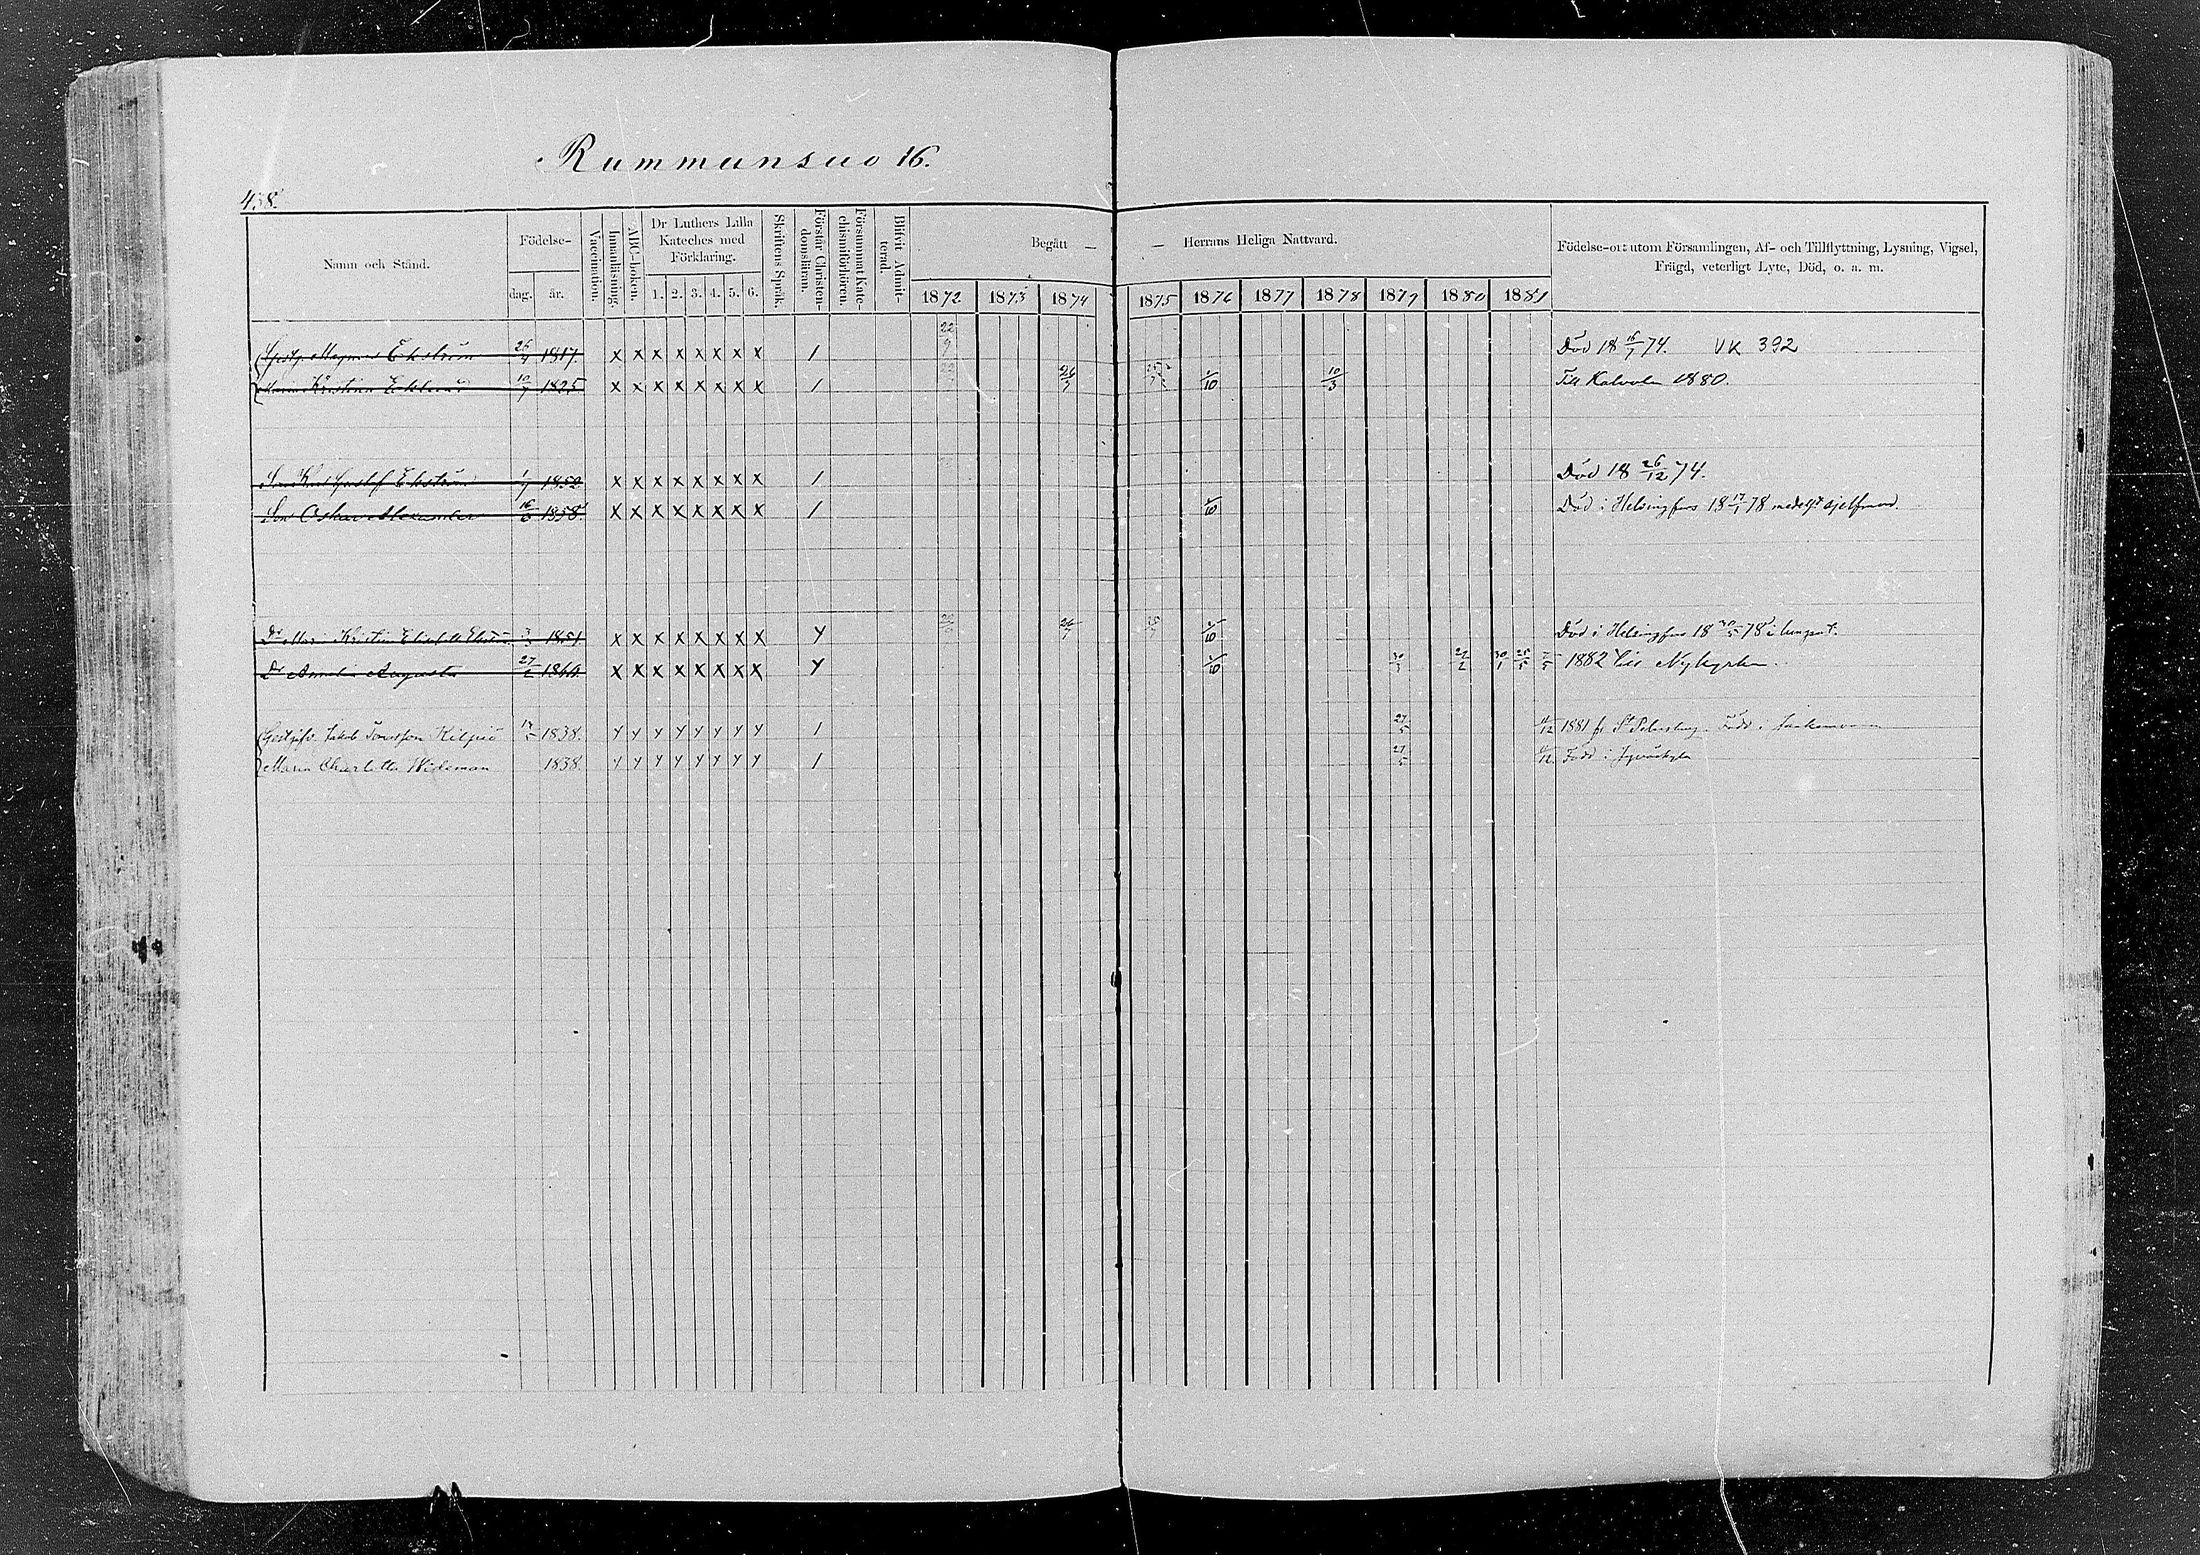 Rummunsuo 16.
458.
Namn och Stånd.
Födelse-
dag. år.
Vaccination.
Innanläsning.
ABC-boken.
Dr Luthers Lilla
Kateches med
Förklaring.
1. 2. 3. 4. 5. 6.
Skriftens Språk.
Förstår Christen-
domsläran.
Försummat Kate-
chismiförhören.
Blifvit Admit-
terad.
Begått —
— Herrans Heliga Nattvard.
1872 1873 1874 1875 1876 1877 1878 1879 1880 1881
Födelse-ort utom Församlingen, Af- och Tillflyttning, Lysning, Vigsel,
Frägd, veterligt Lyte, Död, o. a. m.
Magnus Ekström 1817. x x x x x x x x 1 22/9 Död 18 16/7 74. VK 392
Maria Kristina 10/7 1825 x x x x x x x x 1 26/7 1/10 10/3 Till Kalvola 1880.
Gustaf Ekström 1/7 1852 x x x x x x x x 1 Död 18 26/12 74.
Son Oskar Alexander 1858. x x x x x x x x 1 Död i Helsingfors 18 17/1 78
Dr Maria Kristina 1851 x x x x x x x x y 26/7 Död i Helsingfors 18 /5 78
Dr Amalia Augusta 27/2 1860. x x x x x x x x y 1882 till Nykyrka.
Jakob Kilpiö 1838. y y y y y y y y 1 27/5 /12 1881 fr St Petersburg. Född i
Maria Charlotta Wideman 1838. y y y y y y y y 1 27/5 /12 Född i Jyväskylä